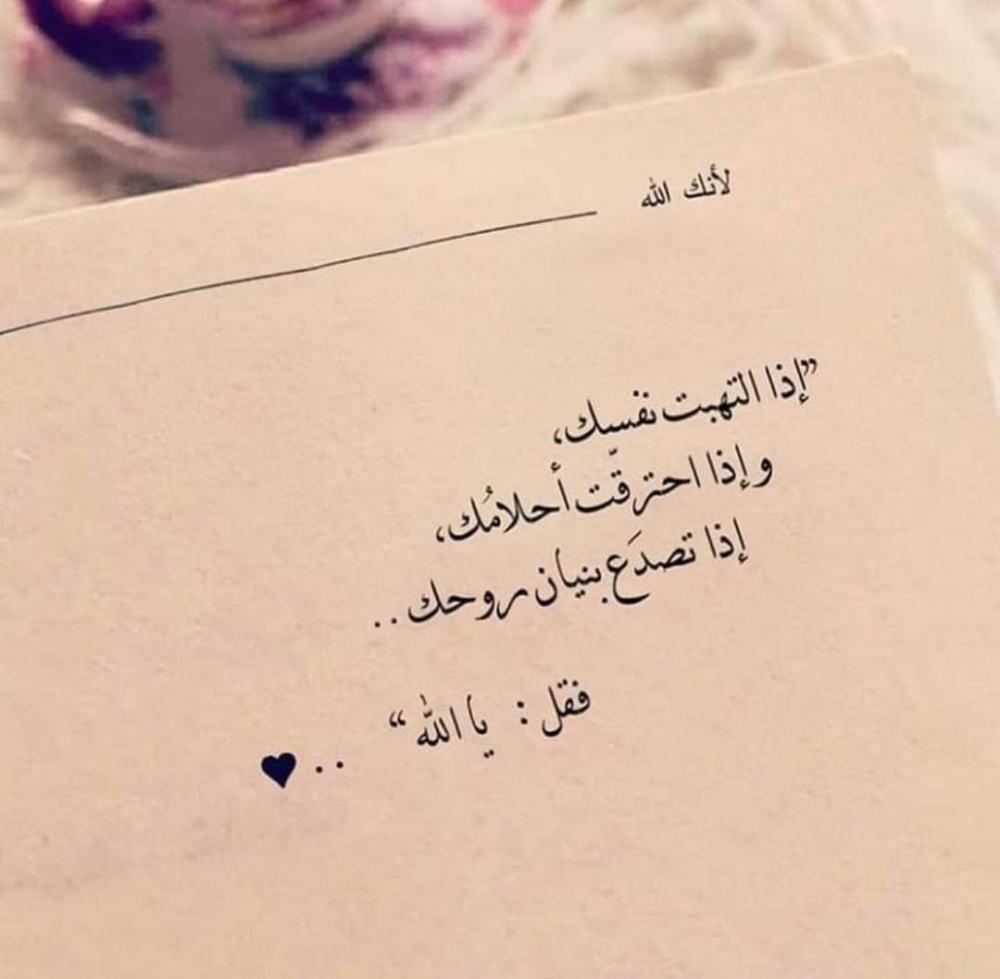 لأنك الله
”إذا التهبت نفسك،
وإذا احترقت أحلامُك،
إذا تصدَع بنيان روحك..
فقل: يا الله“ ..♥